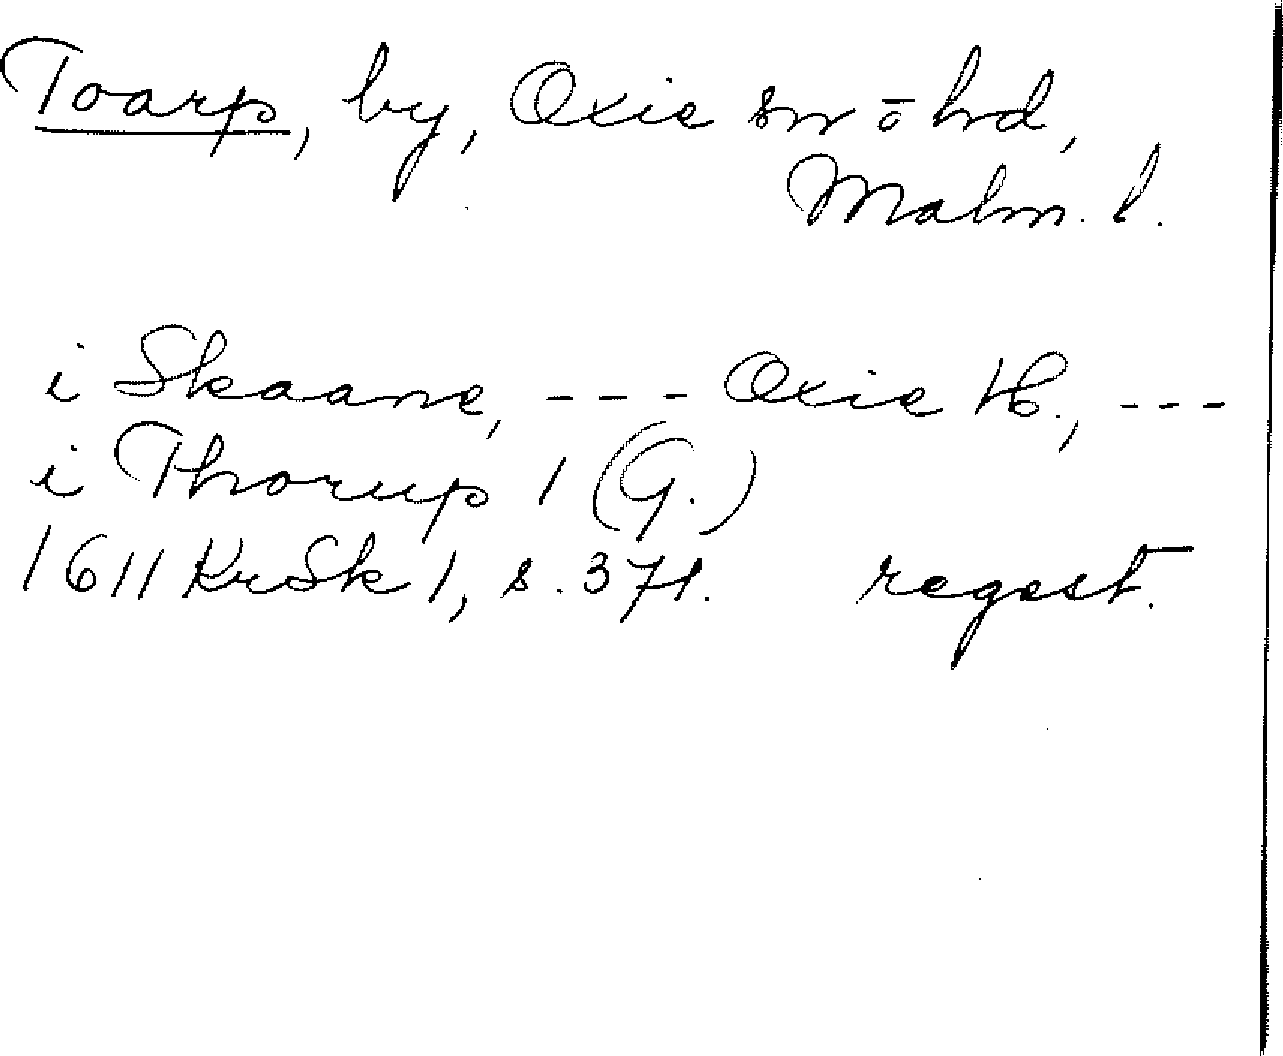 Toarp, by, Oxie sn o hd,
Malm. l.
i Skaane, --- Oxie H., ---
i Thorup 1 (G.)
1611 KrSk 1, s. 371. regest.